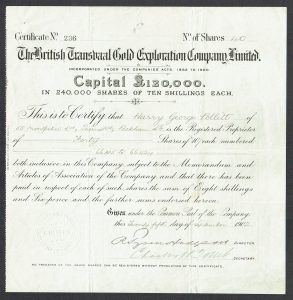 Certificate No. 236 No. of Shares 40
The British Transvaal Gold Exploration Company, Limited.
INCORPORATED UNDER THE COMPANIES ACTS, 1862 TO 1890.
Capital £120,000.
IN 240,000 SHARES OF TEN SHILLINGS EACH.
This is to Certify that Harry George
of is the Registered Proprietor
of Forty Shares of 10/- each numbered
to
both inclusive in this Company, subject to the Memorandum and
Articles of Association of the Company and that there has been
paid in respect of each of such shares the sum of Eight shillings
and Six pence and the further sums endorsed hereon.
Given under the Common Seal of the Company,
this Twenty fifth day of 190
DIRECTOR
SECRETARY
NO TRANSFER OF THE ABOVE SHARES CAN BE REGISTERED WITHOUT PRODUCTION OF THIS CERTIFICATE.